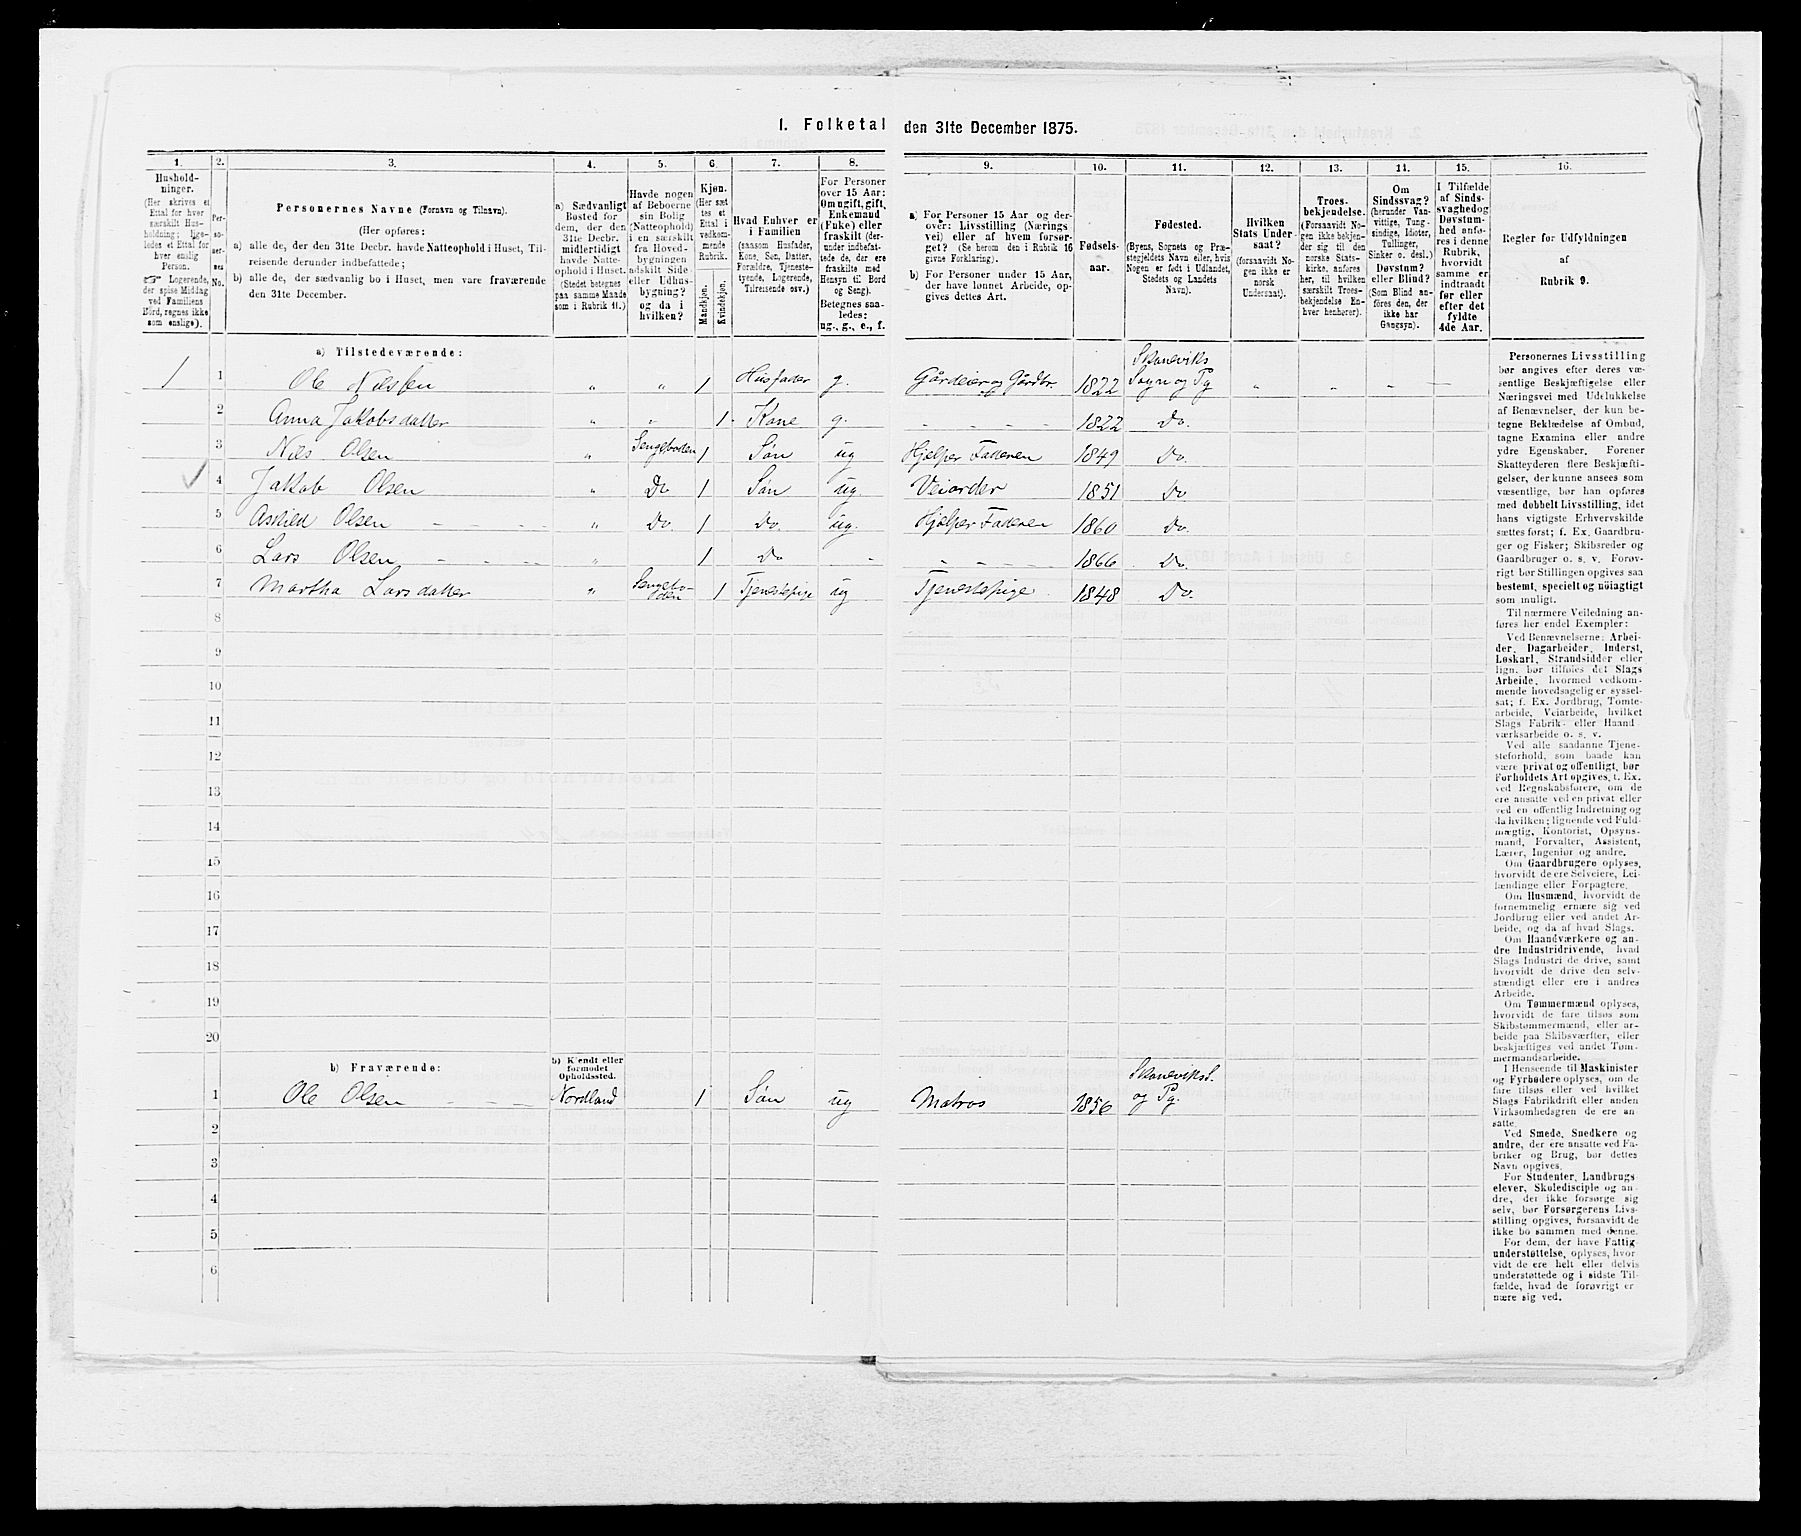 1. Folketal den 31te December 1875.
1. 2. 3. 4. 5. 6. 7. 8. 9. 10. 11. 12. 13. 14. 15. 16.
Hushold-
ninger.
(Her skrives et
Ettal for hver
særskilt Hus-
holdning; lige-
ledes et Ettal for
hver enslig
Person.
Logerende,
der spise Middag
ved Familiens
Bord, regnes ikke
som enslige).
Per-
so-
ner-
nes
No.
Personernes Navne (Fornavn og Tilnavn).
(Her opføres:
a) alle de, der den 31te Decbr. havde Natteophold i Huset, Til-
reisende derunder indbefattede;
b) alle de, der sædvanlig bo i Huset, men vare fraværende
den 31te December.
a) Sædvanligt
Bosted for
dem, der den
31te Decbr.
midlertidigt
havde Natte-
ophold i Huset.
(Stedet betegnes
paa samme Maade
som i Rubrik 11.)
Havde nogen
af Beboerne
sin Bolig
(Natteophold)
i en særskilt
fra Hoved-
bygningen
adskilt Side-
eller Udhus-
bygning?
og da i
hvilken?
Kjøn.
(Her sæt
tes et
Ettal i
vedkom-
mende
Rubrik.
Mandkjøn.
Kvindekjøn.
Hvad Enhver er
i Familien
(saasom Husfader,
Kone, Søn, Datter,
Forældre, Tjeneste-
tyende, Logerende,
Tilreisende osv.)
For Personer
over 15 Aar:
Om ugift, gift,
Enkemand
(Enke) eller
fraskilt (der-
under indbefat-
tede de, der ere
fraskilte med
Hensyn til Bord
og Seng).
Betegnes saa-
ledes:
ug., g., e., f.
a) For Personer 15 Aar og der-
over: Livsstilling (Nærings
vei) eller af hvem forsør-
get? (Se herom den i Rubrik 16
givne Forklaring).
b) For Personer under 15 Aar,
der have lønnet Arbeide, op-
gives dettes Art.
Fødsels-
aar.
Fødested.
(Byens, Sognets og Præ-
stegjeldets Navn eller, hvis
Nogen er født i Udlandet,
Stedets og Landets
Navn).
Hvilken
Stats Under-
saat?
(forsaavidt No-
gen ikke er
norsk
Undersaat).
Troes-
bekjendelse.
(Forsaavidt No-
gen ikke bekjen-
der sig til den
norske Stats-
kirke, anføres
her, til hvilken
særskilt Troes-
bekjendelse En-
hver henhører).
Om
Sindssvag?
(herunder Van-
vittige, Tung-
sindige, Idioter,
Sinker o. desl.)
Døvstum?
eller Blind?
(Som Blind an-
føres den, der
ikke har
Gangsyn).
I Tilfælde
af Sinds-
svaghed og
Døvstum-
hed anfø-
res i denne
Rubrik,
hvorvidt
samme er
indtraadt
før eller
efter det
fyldte
4de Aar.
Regler for Udfyldningen
af
Rubrik 9.
a) Tilstedeværende:
1 1 Ole Nilssen " " 1 Husfader g. Gårdeier og Gårdbr. 1822 Skoneviks Sogn og Pg " " " -
2 Anna Jakobsdatter " " 1 Kone g. - - - - 1822 Do.
3 Nils Olsen " Sengeboden 1 Søn ug Hjelper Faderen 1849 Do.
4 Jakob Olsen " Do 1 Søn ug Veiarder 1851 Do
5 Askild Olsen - - - " Do. 1 Do. ug. Hjelper Faderen 1860 Do.
6 Lars Olsen - - - " 1 Do - - - - - 1866 Do.
7 Martha Larsdatter " Sengebo-
den 1 Tjenestepige ug Tjenestepige 1848 Do.
8
9
10
11
12
13
14
15
16
17
18
19
20
b) Fraværende:
b) Kjendt eller
formodet
Opholdssted.
1 Ole Olsen - - - Nordland 1 Søn ug Matros 1856 Skoneviks S.
og Pg.
2
3
4
5
6
Personernes Livsstilling
bør angives efter deres væ-
sentlige Beskjæftigelse eller
Næringsvei med Udelukkelse
af Benævnelser, der kun be-
tegne Beklædelse af Ombud,
tagne Examina eller andre
ydre Egenskaber. Forener
Skatteyderen flere Beskjæfti-
gelser, der kunne ansees som
væsentlige, bør han opføres
med dobbelt Livsstilling, idet
hans vigtigste Erhvervskilde
sættes først; f. Ex. Gaardbru-
ger og Fisker; Skibsreder og
Gaardbruger o. s. v. Forøv-
rigt bør Stillingen opgives saa
bestemt, specielt og nøiagtigt
som muligt.
Til nærmere Veiledning an-
føres her endel Exempler:
Ved Benævnelserne: Arbei-
der, Dagarbeider, Inderst,
Løskarl, Strandsidder eller
lign. bør tilføies det Slags
Arbeide, hvormed vedkom-
mende hovedsagelig er syssel-
sat; f. Ex. Jordbrug, Tomte-
arbeide, Veiarbeide, hvilket
Slags Fabrik- eller Haand
værksarbeide o. s. v.
Ved alle saadanne Tjene-
steforhold, som baade kan
være privat og offentligt, bør
Forholdets Art opgives, t. Ex.
ved Regnskabsførere, om de
ere ansatte ved en privat eller
ved en offentlig Indretning og
da hvilken; lignende ved Fuld-
mægtig, Kontorist, Opsyns-
mand, Forvalter, Assistent,
Lærer, Ingeniør og andre.
Om Gaardbrugere oplyses,
hvorvidt de ere Selveiere, Lei-
lændinge eller Forpagtere.
Om Husmænd, hvorvidt de
fornemmelig ernære sig ved
Jordbrug eller ved andet Ar-
beide, og da af hvad Slags.
Om Haandværkere og an-
dre Industridrivende, hvad
Slags Industri de drive, samt
hvorvidt de drive den selv-
stændigt eller ere i andres
Arbeide.
Om Tømmermænd oplyses,
hvorvidt de fare tilsøs som
Skibstømmermænd, eller ar-
beide paa Skibsværfter, eller
beskjæftiges ved andet Tøm-
mermandsarbeide.
I Henseende til Maskinister
og Fyrbødere oplyses, om de
fare tilsøs eller ved hvilket
Slags Fabrikdrift eller anden
Virksomhedsgren de ere an-
satte.
Ved Smede, Snedkere og
andre, der ere ansatte ved Fa-
briker og Brug, bør dettes
Navn opgives.
For Studenter, Landbrugs
elever, Skoledisciple og an-
dre, der ikke forsørge sig
selv, bør Forsørgerens Livs-
stilling opgives, forsaavidt de
ikke bo sammen med denne.
For dem, der have Fattig
understøttelse, oplyses, hvor
vidt de ere helt eller delvis
understøttede og i sidste Til-
fælde, hvad de forøvrigt er
nære sig ved.